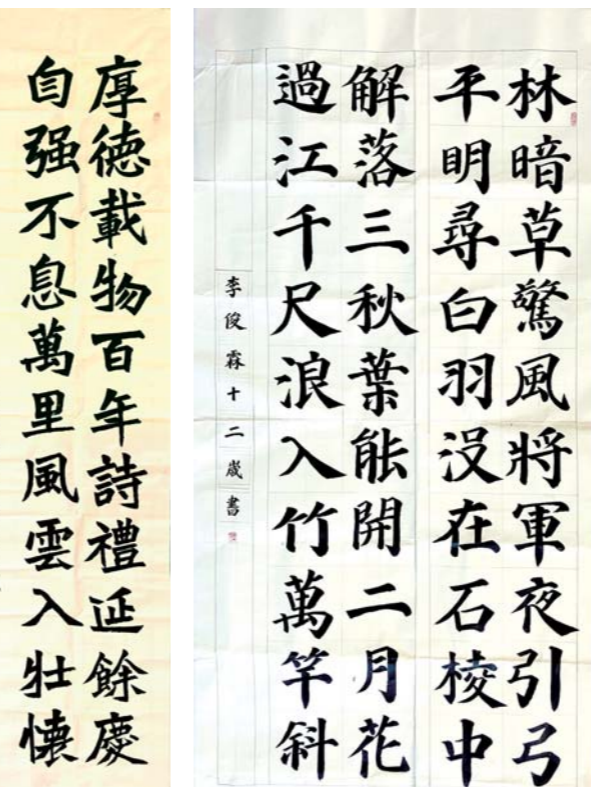 厚德載物百年詩禮延餘慶
自强不息萬里風雲入壯懷
林暗草驚風將軍夜引弓
平明尋白羽没在石棱中
解落三秋葉能開二月花
過江千尺浪入竹萬竿斜
李俊霖十二歲書